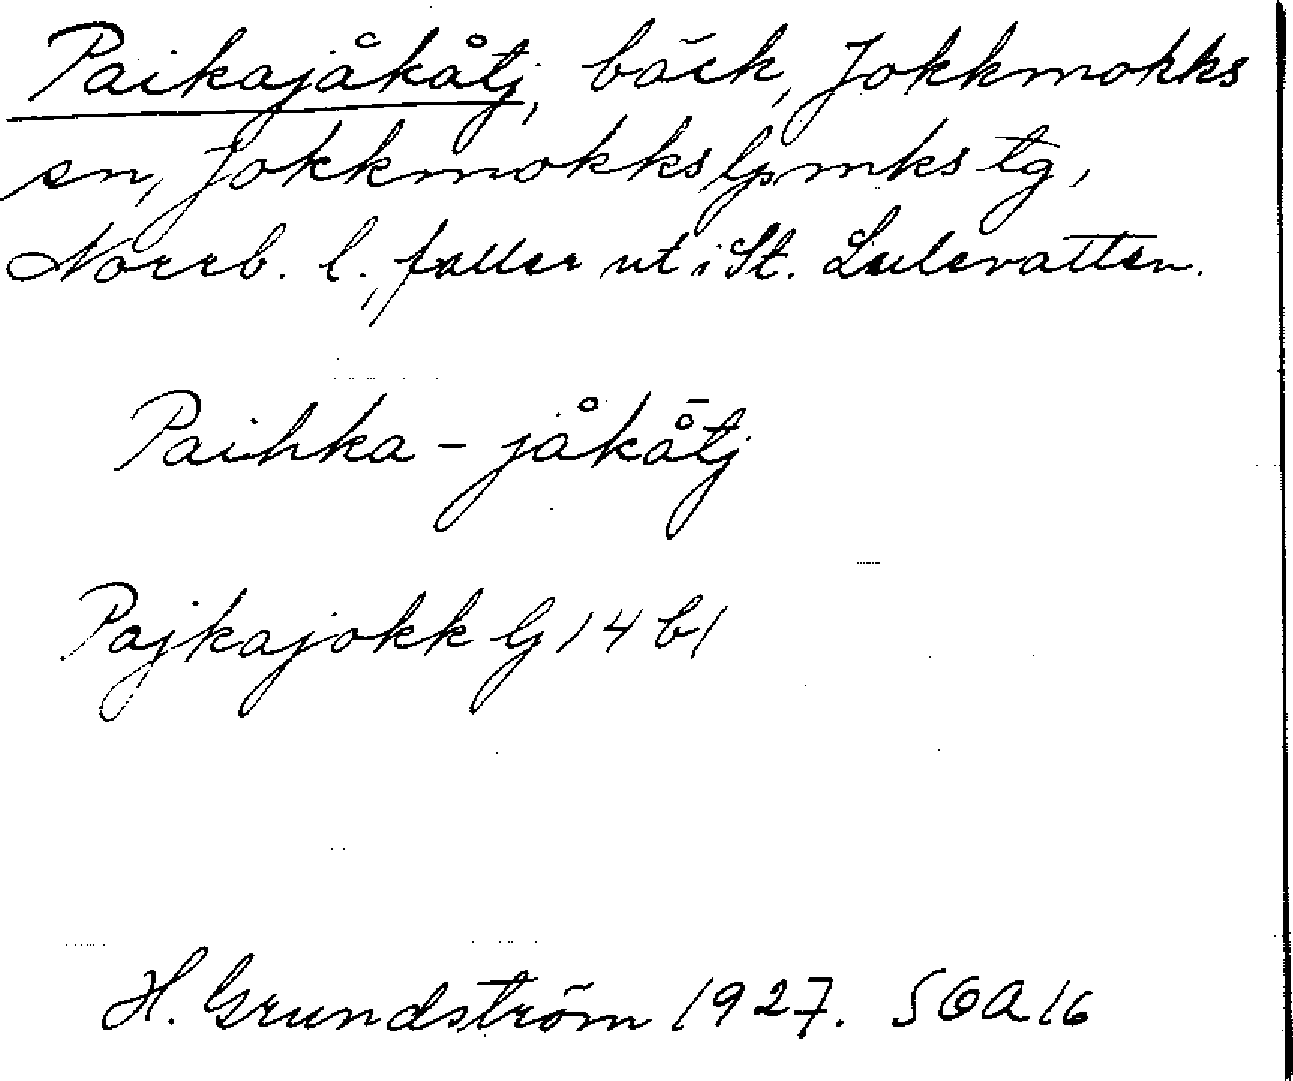 Paikajåkåtj, bäck, Jokkmokks
sn, Jokkmokks lpmks tg,
Norrb. l., faller ut i St. Lulevatten.
Paihka - jåkåtj
Pajkajokk G 14 b1
H. Grundström 1927. SOA 16